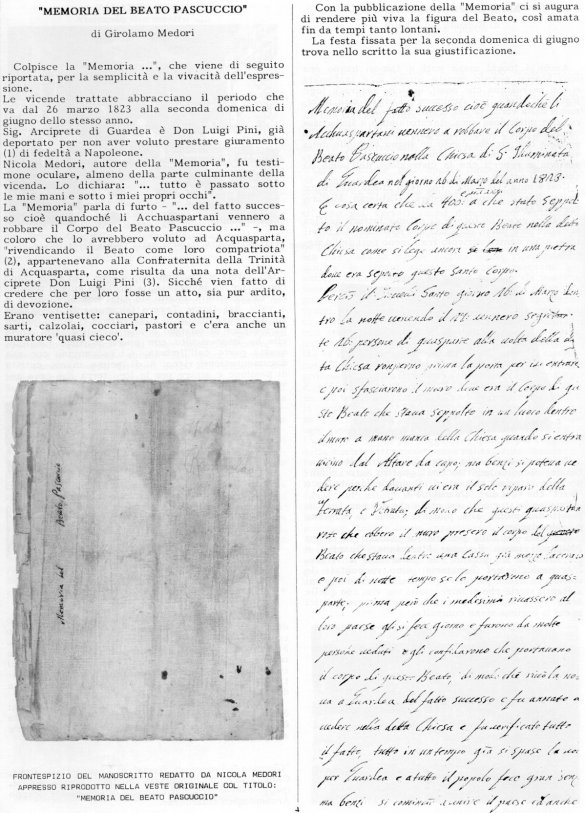 "MEMORIA DEL BEATO PASCUCCIO"
di Girolamo Medori
Colpisce la "Memoria ...", che viene di seguito
riportata, per la semplicità e la vivacità dell'espres-
sione.
Le vicende trattate abbracciano il periodo che
va dal 26 marzo 1823 alla seconda domenica di
giugno dello stesso anno.
Sig. Arciprete di Guardea è Don Luigi Pini, già
deportato per non aver voluto prestare giuramento
(1) di fedeltà a Napoleone.
Nicola Medori, autore della "Memoria", fu testi-
mone oculare, almeno della parte culminante della
vicenda. Lo dichiara: "... tutto è passato sotto
le mie mani e sotto i miei propri occhi".
La "Memoria" parla di furto - "... del fatto succes-
so cioè quandoché li Acchuaspartani vennero a
robbare il Corpo del Beato Pascuccio ..." -, ma
coloro che lo avrebbero voluto ad Acquasparta,
"rivendicando il Beato come loro compatriota"
(2), appartenevano alla Confraternita della Trinità
di Acquasparta, come risulta da una nota dell'Ar-
ciprete Don Luigi Pini (3). Sicché vien fatto di
credere che per loro fosse un atto, sia pur ardito,
di devozione.
Erano ventisette: canepari, contadini, braccianti,
sarti, calzolai, cocciari, pastori e c'era anche un
muratore 'quasi cieco'.
Memoria del Beato Pascuccio
FRONTESPIZIO DEL MANOSCRITTO REDATTO DA NICOLA MEDORI
APPRESSO RIPRODOTTO NELLA VESTE ORIGINALE COL TITOLO:
"MEMORIA DEL BEATO PASCUCCIO"
Con la pubblicazione della "Memoria" ci si augura
di rendere più viva la figura del Beato, così amata
fin da tempi tanto lontani.
La festa fissata per la seconda domenica di giugno
trova nello scritto la sua giustificazione.
Memoria del fatto successo cioè quandoché li
Acchuaspartani vennero a robbare il Corpo del
Beato Pascuccio nella Chiesa di S. Illuminata
di Guardea nel giorno 26 di Marzo del anno 1823.
E cosa certa che a 403: a che stato Seppol
to il nominato Corpo di questo Beato nella detta
Chiesa come si lege ancora in una pietra
dove era seporo questo Santo Corpo.
Santo giorno 26 di Marzo
tro la notte venendo il 27: vennero
te 26: persone di quasparte alla volta della de
ta Chiesa ronperno prima la porta per ivi entrare
e poi sfasciarono il muro dove era il Corpo di que
sto Beato che stava seppolto in un luoco dentro
il muro a mano manca della Chiesa quando si entra
vicino dal Altare da capo; ma benzi si poteva ve
dere perche davanti vi era il solo riparo della
ferrata e di modo che questi quasparta
che ebbero il muro presero il corpo del
Beato che stava dentro una Cassa già mezza
e poi di notte tempo se lo portarono a quas
parte; prima però che i medesimi rivassero al
loro paese gli si fece giorno e furono da molte
persone veduti e gli confidarono che portavano
il corpo di questo Beato, di modo che rivò la no
va a Guardea del fatto successo e fu annato a
vedere nella detta Chiesa e fu verificato tutto
il fatto, tutto in un tempo già si spase la voce
per Guardea e a tutto il popolo fece gran senso
ma benzi si cominciò a venire il paese ed anche
4